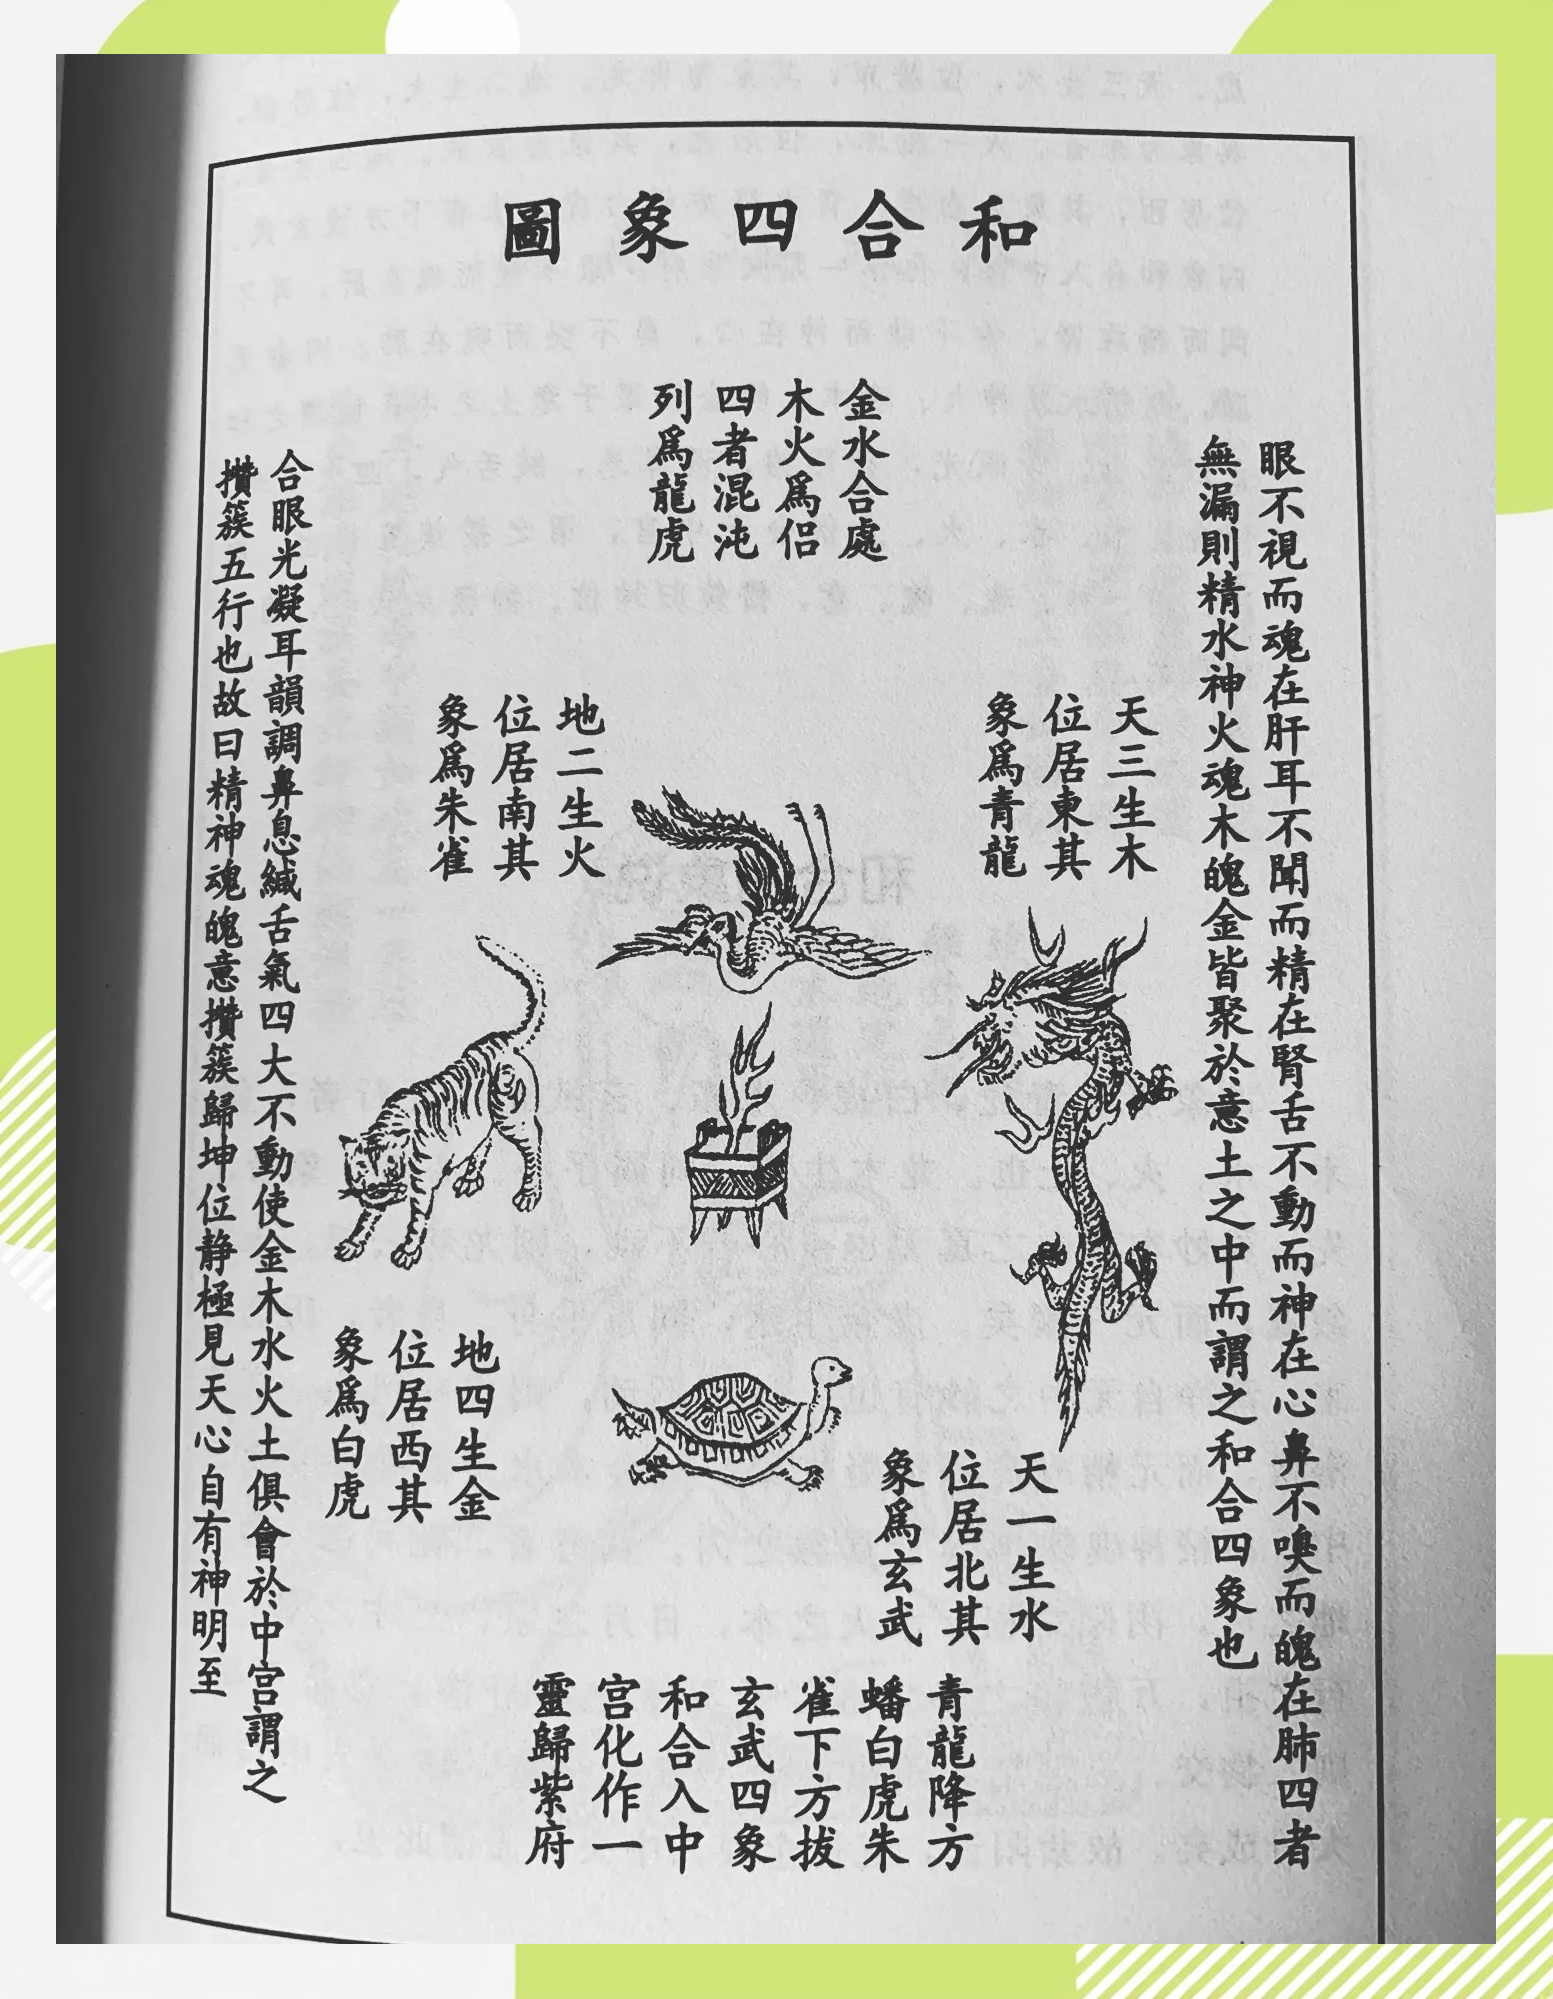 和合四象圖
眼不視而魂在肝耳不聞而精在腎舌不動而神在心鼻不嗅而魄在肺四者
無漏則精水神火魂木魄金皆聚於意土之中而謂之和合四象也
金水合處
木火爲侣
四者混沌
列爲龍虎
天三生木
位居東其
象爲青龍
地二生火
位居南其
象爲朱雀
天一生水
位居北其
象爲玄武
地四生金
位居西其
象爲白虎
青龍降方
蟠白虎朱
雀下方拔
玄武四象
和合入中
宫化作一
靈歸紫府
合眼光凝耳韻調鼻息緘舌氣四大不動使金木水火土俱會於中宫謂之
攢簇五行也故曰精神魂魄意攢簇歸坤位静極見天心自有神明至